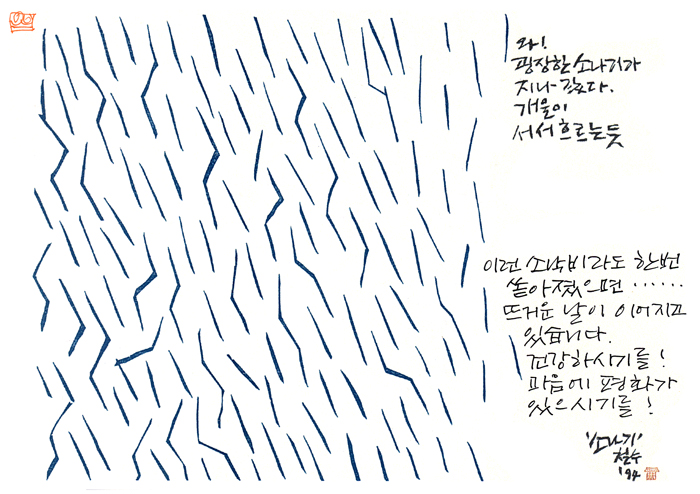 와!
굉장한 소나기가
지나 갔다.
개울이
서서 흐르는 듯
이런 소낙비라도 한번
쏟아졌으면 ······
뜨거운 날이 이어지고
있습니다.
건강하시기를!
마음에 평화가
있으시기를!
'소나기'
철수
'94